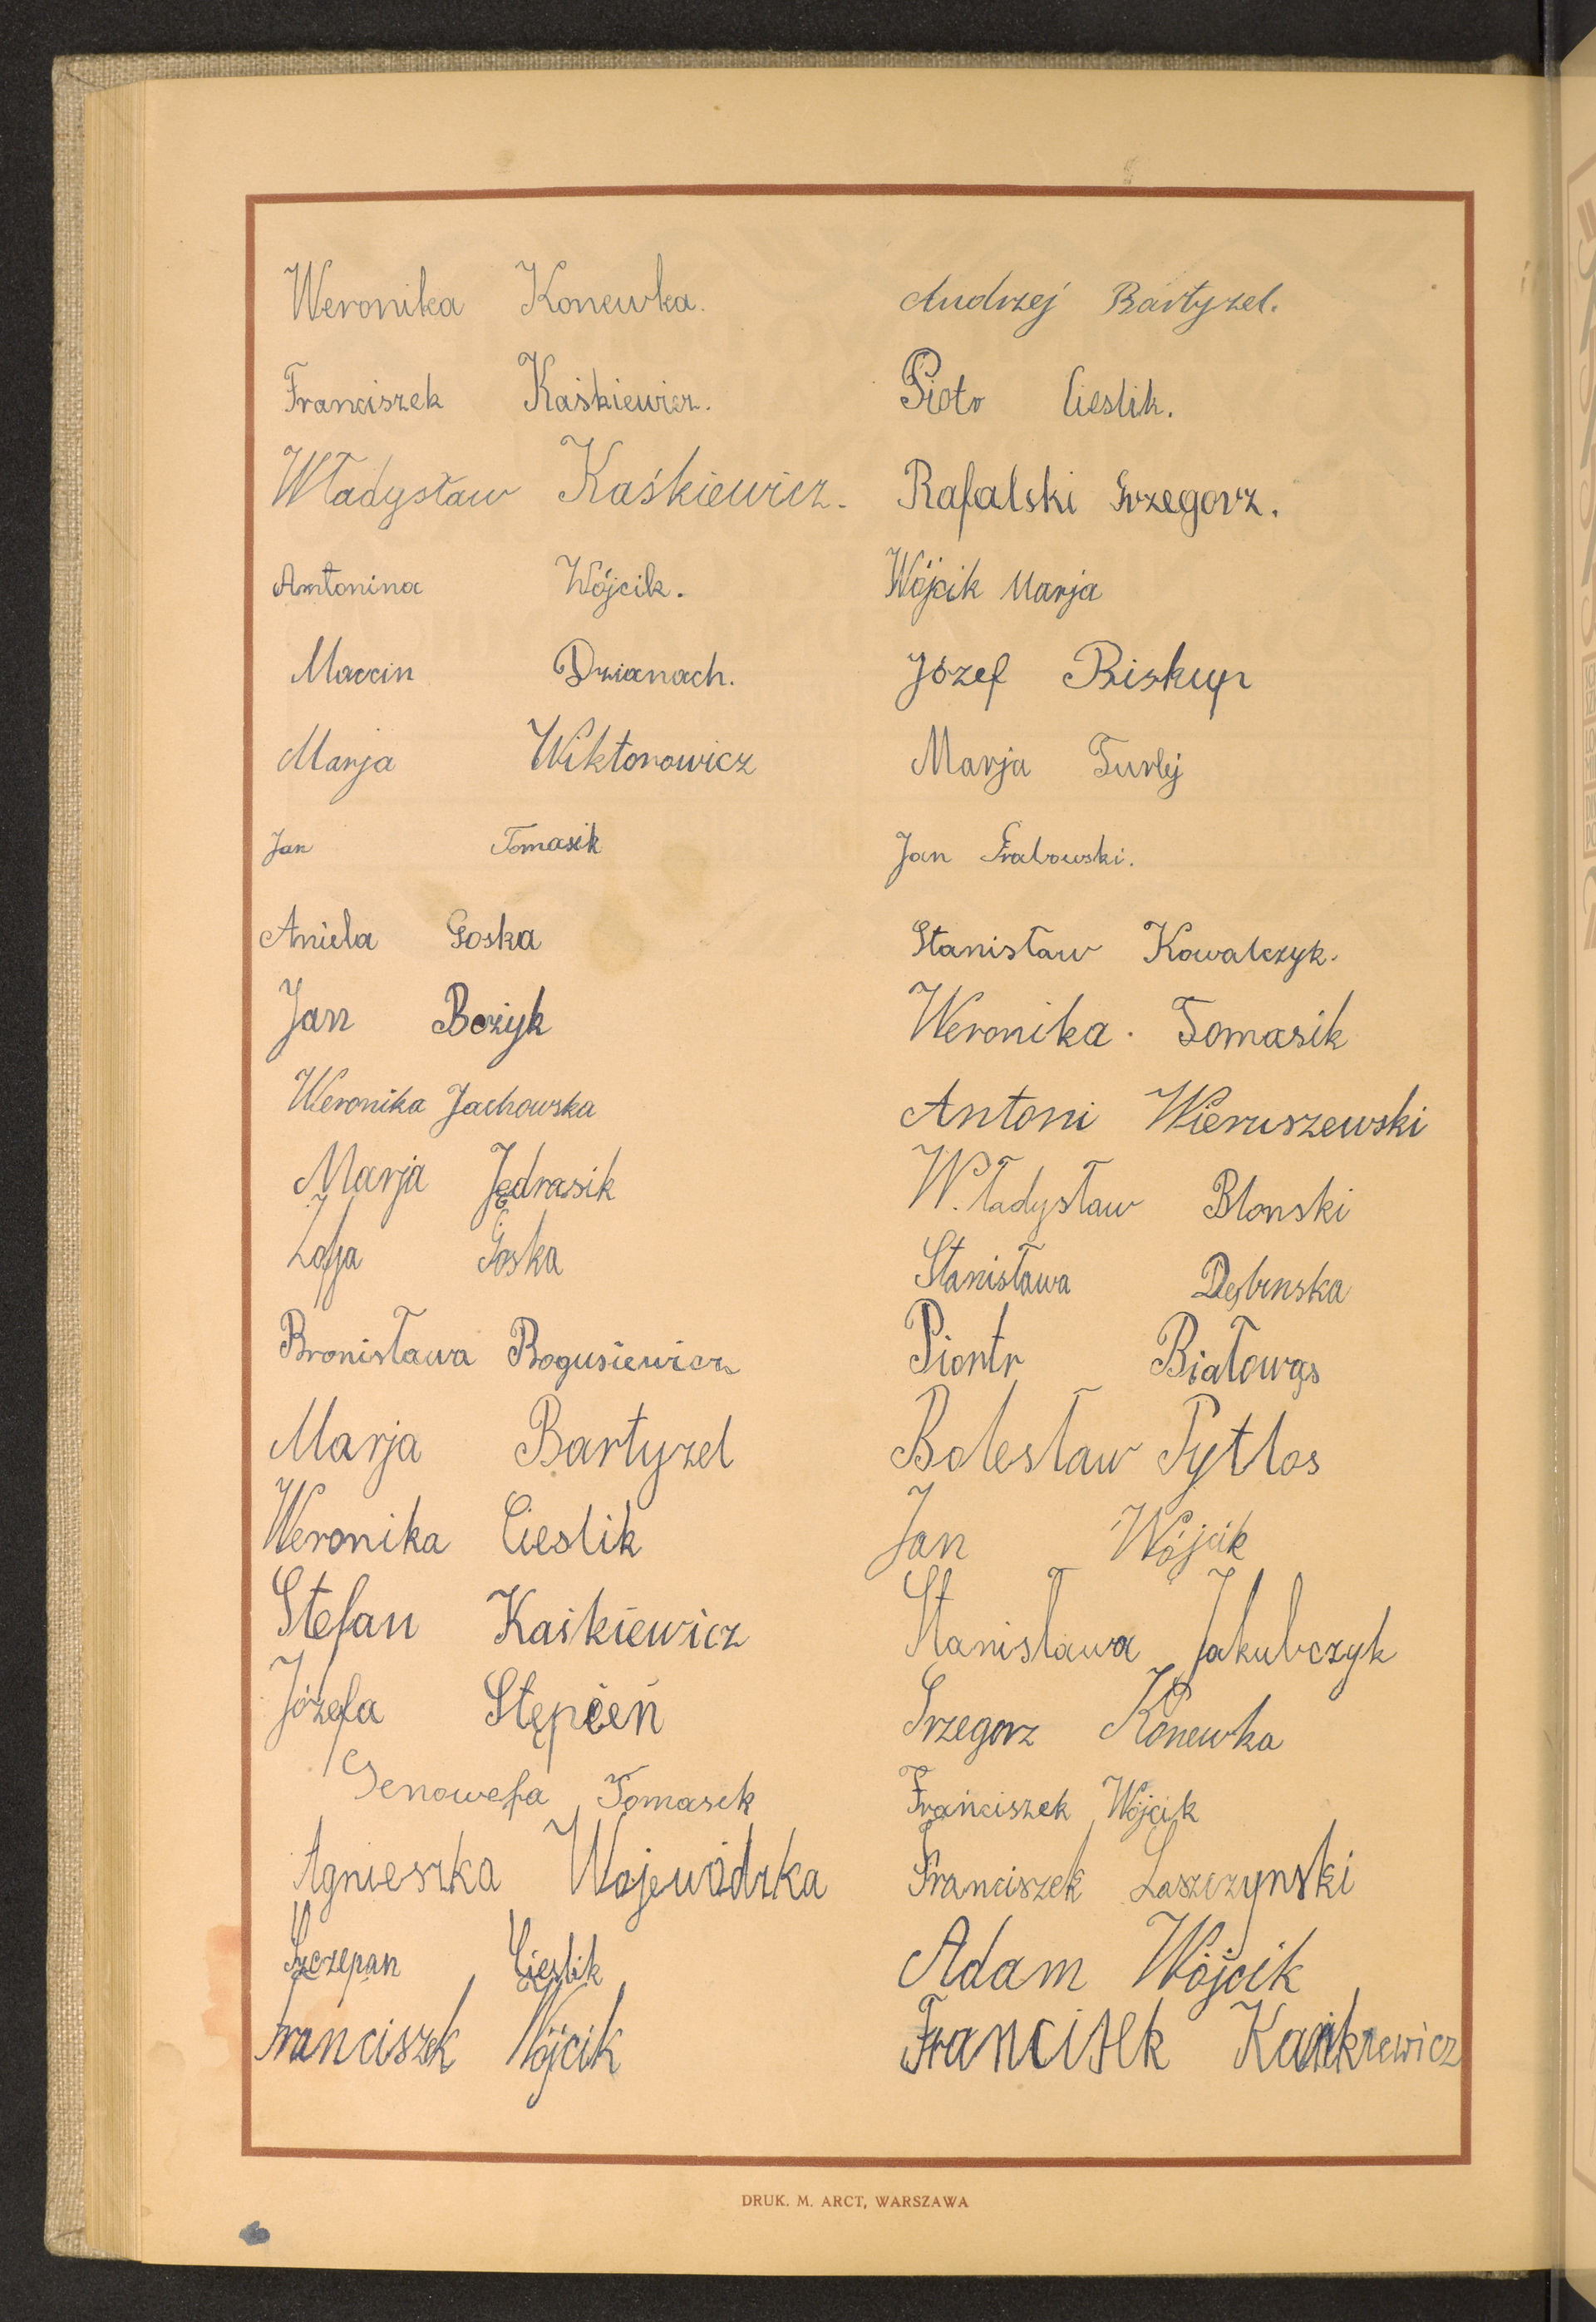 Weronika Konewka.
Franciszek Kaśkiewicz.
Władysław Kaśkiewicz.
Antonina Wójcik.
Marcin Dzianach.
Marja Wiktorowicz
Jan Tomasik
Aniela Goska
Jan Bożyk
Weronika Jachowska
Marja Jędrasik
Zofja Goska
Bronisława Bogusiewicz
Marja Bartyzel
Weronika Cieslik
Stefan Kaśkiewicz
Józefa Stępień
Genowefa Tomasik
Agnieszka Wojewódzka
Szczepan Cieslik
Franciszek Wójcik
Andrzej Bartyzel.
Piotr Cieslik.
Rafalski Grzegorz.
Wójcik Marja
Józef Biskup
Marja Turlej
Jan Grabowski.
Stanisław Kowalczyk.
Weronika Tomasik
Antoni Wieruszewski
Władysław Blonski
Stanisława Dębinska
Piontr Białowąs
Bolesław Pytlos
Jan Wójcik
Stanisława Jakubczyk
Grzegorz Konewka
Franciszek Wójcik
Franciszek Laszczynski
Adam Wójcik
Francisek
DRUK. M. ARCT, WARSZAWA